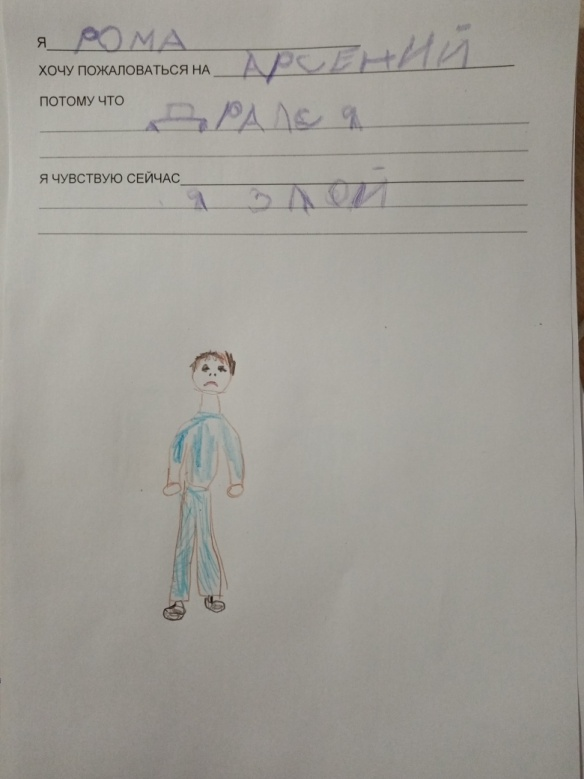 Я РОМА
ХОЧУ ПОЖАЛОВАТЬСЯ НА АРСЕНИЙ
ПОТОМУ ЧТО
ДРАЛСЯ
Я ЧУВСТВУЮ СЕЙЧАС
Я ЗЛОЙ